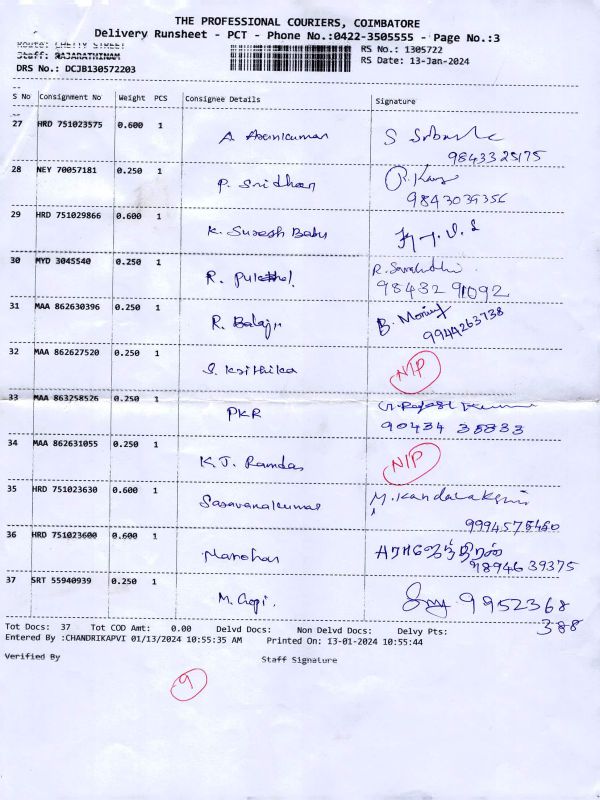 THE PROFESSIONAL COURIERS, COIMBATORE
Delivery Runsheet - PCT - Phone No.:0422-3505555 - Page No.:3
Route: CHETTY STREET
RS No.: 1305722
Staff: RAJARATHINAM
RS Date: 13-Jan-2024
DRS No.: DCJB130572203
S No Consignment No Weight PCS Consignee Details Signature
27 HRD 751023575 0.600 1 A. Arunkumar S
9843325175
28 NEY 70057181 0.250 1 P. Sridhar
9843039356
29 HRD 751029866 0.600 1 K. Suresh Babu
30 MYD 3045540 0.250 1 R.
98432 91092
31 MAA 862630396 0.250 1 R. Balaji B.
9944263738
32 MAA 862627520 0.250 1 S. Krithika N/P
33 MAA 863258526 0.250 1 PKR
90434 35833
34 MAA 862631055 0.250 1 K.J. Ramdas N/P
35 HRD 751023630 0.600 1 Saravanakumar M.
36 HRD 751023600 0.600 1 Manohar
9894639375
37 SRT 55940939 0.250 1 M. Gopi. 9952368
388
Tot Docs: 37 Tot COD Amt: 0.00 Delvd Docs: Non Delvd Docs: Delvy Pts:
Entered By :CHANDRIKAPVI 01/13/2024 10:55:35 AM Printed On: 13-01-2024 10:55:44
Verified By Staff Signature
9